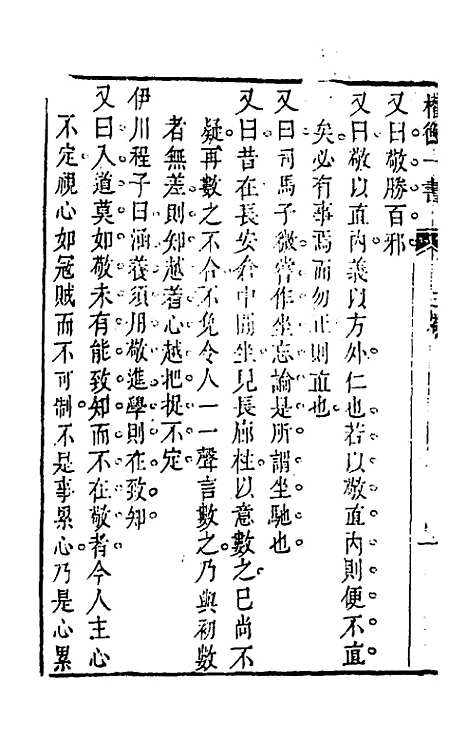 權衡一書
又曰敬勝百邪
又曰敬以直內義以方外仁也若以敬直內則便不直
矣必有事焉而勿正則直也
又曰司馬子微嘗作坐忘論是所謂坐馳也
又曰昔在長安倉中閒坐見長廊柱以意數之已尚不
疑再數之不合不免令人一一聲言數之乃與初數
者無差則知越着心越把捉不定
伊川程子曰涵養須用敬進學則在致知
又曰入道莫如敬未有能致知而不在敬者今人主心
不定視心如冦賊而不可制不是事累心乃是心累